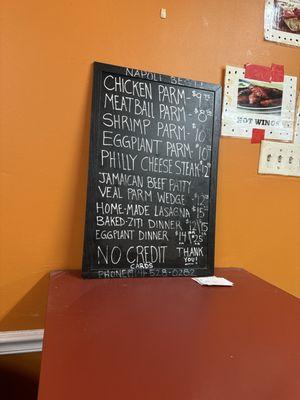 NAPOLI BEST
CHICKEN PARM-$9
MEATBALL PARM-$8
SHRIMP PARM $10
EGGPLANT PARM-$10
PHILLY CHEESE STEAK
JAMAICAN BEEF PATTY
VEAL PARM WEDGE
HOME-MADE LASAGNA $15
BAKED-ZITI DINNER
EGGPLANT DINNER $14
NO CREDIT
CARDS
THANK
YOU!
528-0282
HOT WINGS